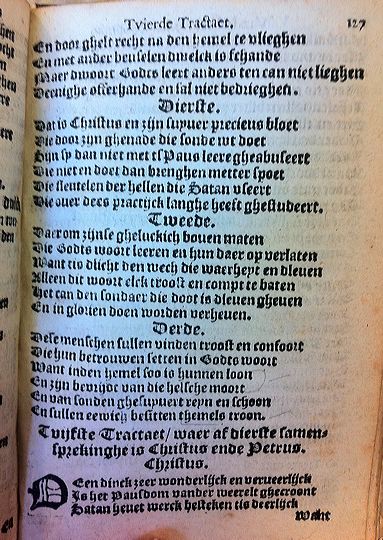 Tvierde Tractaet. 127
En door ghelt recht na den hemel te vlieghen
En met ander beuselen dwelck is schande
Maer dwoort Godts leert anders ten can niet lieghen
Deenighe offerhande en sal niet bedrieghen.
Dierste.
Dat is Christus en zijn supuer precieus bloet
Die door zijn ghenade die sonde wt doet
Sijn sp dan niet met tsPaus leere gheabuseert
Die niet en doet dan brenghen metter spoet
Die sleutelen der hellen die Satan vseert
Die ouer dees practijck langhe heeft ghestudeert.
Tweede.
Daerom zijnse gheluckich bouen maten
Die Godts woort leeren en hun daer op verlaten
Want tis dlicht den wech die waerheyt en dleuen
Alleen dit woort elck troost en compt te baten
Het can den sondaer die doot is dleuen gheuen
En in glorien doen worden verheuen.
Derde.
Dese menschen sullen vinden troost en confoort
Die hun betrouwen setten in Godts woort
Want inden hemel soo is hunnen loon
En zijn bevrijdt van die helsche moort
En van sonden ghesupuert reyn en schoon
En sullen eewich besitten themels troon.
Tvijfste Tractaet/ waer af dierste samen-
sprekinghe is Christus ende Petrus.
Christus.
Een dinck zeer wonderlijck en verueerlijck
Is het Pausdom vander weerelt ghecroont
Satan heuet werck besteken tis deerlijck
Want